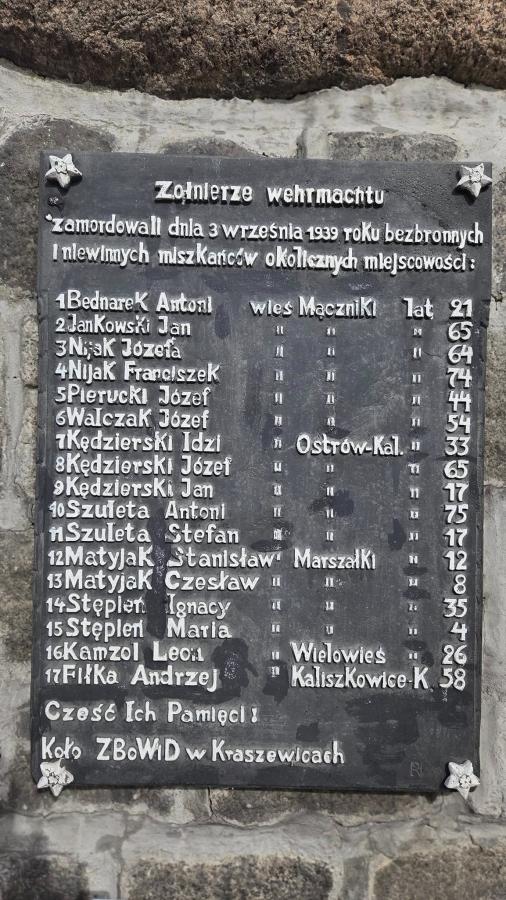 Żołnierze wehrmachtu
zamordowali dnia 3 września 1939 roku bezbronnych
i niewinnych miszkańców okolicznych miejscowości :
1 Bednarek Antoni wieś Mączniki lat 21
2 Jankowski Jan " " " 65
3 Nijak Józefa " " " 64
4 Nijak Franciszek " " " 74
5 Pierucki Józef " " " 44
6 Walczak Józef " " " 54
7 Kędzierski Idzi " Ostrów-Kal. " 33
8 Kędzierski Józef " " " 65
9 Kędzierski Jan " " " 17
10 Szuleta Antoni " " " 75
11 Szuleta Stefan " " " 17
12 Matyjak Stanisław " Marszałki " 12
13 Matyjak Czesław " " " 8
14 Stępień Ignacy " " " 35
15 Stępień Maria " " " 4
16 Kamzol Leon " Wielowieś " 26
17 Fiłka Andrzej " Kaliszkowice-K 58
Cześć Ich Pamięci !
Koło ZBoWiD w Kraszewicach